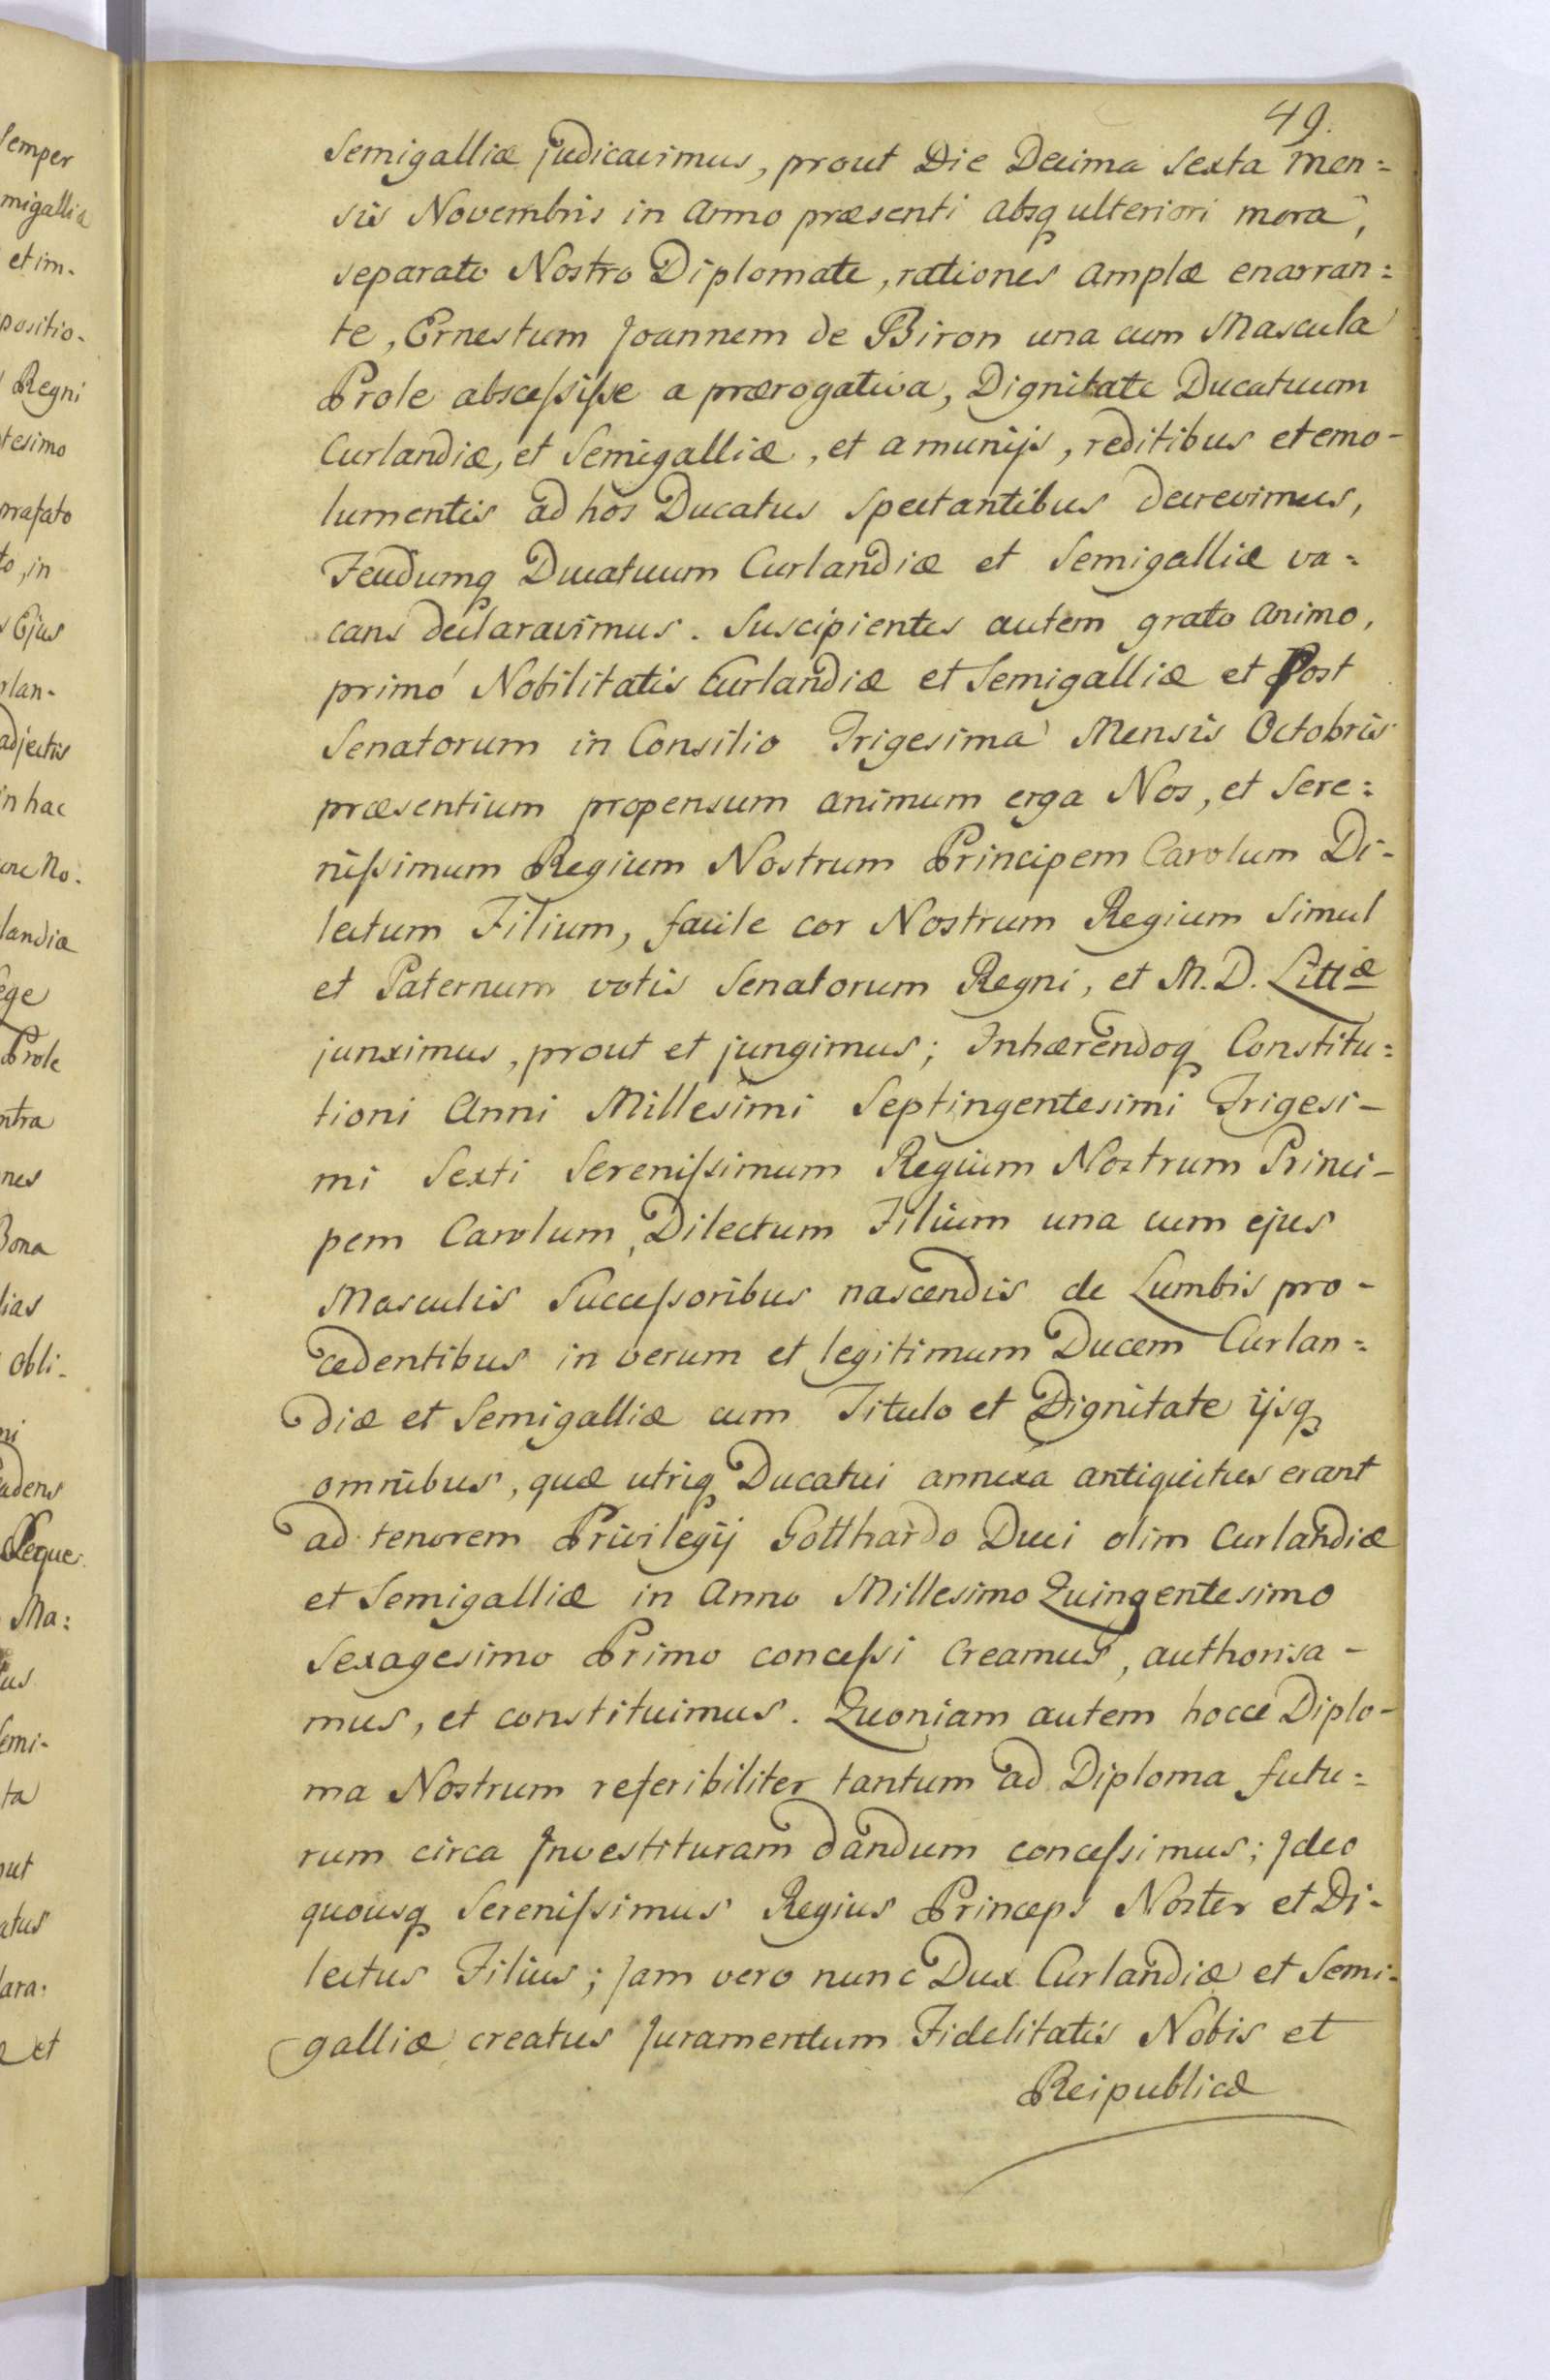 49.
Semigalliæ judicavimus, prout Die Decima Sexta Men=
sis Novembris in Anno præsenti absq ulteriori mora,
separato Nostro Diplomate, rationes amplæ enarran=
te, Ernestum Joannem de Biron una cum Mascula
Prole abscessisse a prærogativa, Dignitate Ducatuum
Curlandiæ, et Semigalliæ, et a munijs, reditibus et emo-
lumentis ad hos Ducatus spectantibus decrevimus,
Feudumq Ducatuum Curlandiæ et Semigalliæ va=
cans declaravimus. Suscipientes autem grato animo,
primó Nobilitatis Curlandiæ et Semigalliæ et Post
Senatorum in Consilio Trigesima Mensis Octobris
præsentium propensum animum erga Nos, et Sere=
nissimum Regium Nostrum Principem Carolum Di-
lectum Filium, facile cor Nostrum Regium Simul
et Paternum votis Senatorum Regni, et M. D. Littiæ
junximus, prout et jungimus; Inhærendoq Constitu=
tioni Anni Millesimi Septingentesimi Trigesi-
mi Sexti Serenissimum Regium Nostrum Princi-
pem Carolum, Dilectum Filium una cum ejus
Masculis Successoribus nascendis de Lumbis pro-
cedentibus in verum et legitimum Ducem Curlan=
diæ et Semigalliæ cum Titulo et Dignitate ijsq
omnibus, quæ utriq Ducatui annexa antiquitus erant
ad tenorem Privilegij Gotthardo Duci olim Curlandiæ
et Semigalliæ in Anno Millesimo Quingentesimo
Sexagesimo Primo concessi Creamus, authorisa-
mus, et constituimus. Quoniam autem hocce Diplo-
ma Nostrum referibiliter tantum ad Diploma futu=
rum circa Investituram dandum concessimus; Ideo
quousq Serenissimus Regius Princeps Noster et Di-
lectus Filius; Jam vero nunc Dux Curlandiæ et Semi-
galliæ creatus Juramentum Fidelitatis Nobis et
Reipublicæ